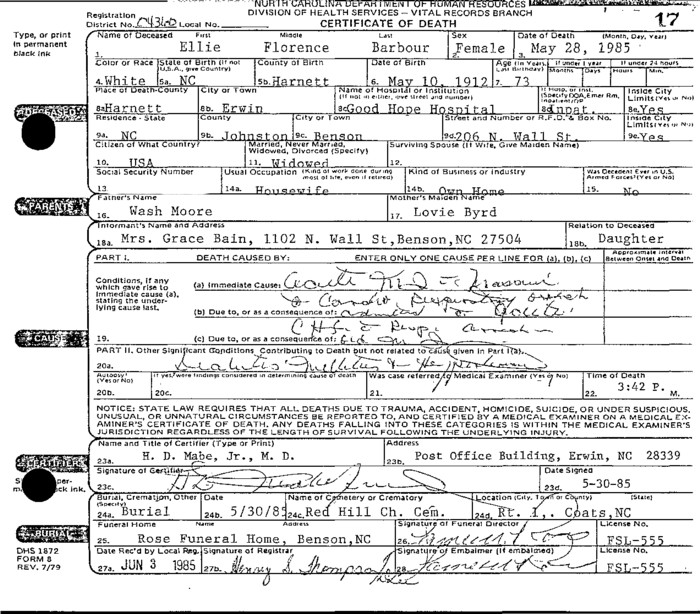 NORTH CAROLINA DEPARTMENT OF HUMAN RESOURCES
DIVISION OF HEALTH SERVICES – VITAL RECORDS BRANCH
CERTIFICATE OF DEATH
17
Registration District No. 04360 Local No.
Type, or print in permanent black ink
1. Name of Deceased First Middle Last
Ellie Florence Barbour
Sex
2. Female
Date of Death (Month, Day, Year)
3. May 28, 1985
Color or Race
4. White
State of Birth (If not U.S.A., give Country)
5a. NC
County of Birth
5b. Harnett
Date of Birth
6. May 10, 1912
Age (In Years, Last Birthday)
7. 73
If under 1 year
Months Days
If under 24 hours
Hours Min.
Place of Death-County
8a Harnett
City or Town
8b. Erwin
Name of Hospital or Institution
(If not in either, give street and number)
8c Good Hope Hospital
If Hosp. or Inst. (Specify DOA, Emer Rm, Inpatient/OP
8d inpat.
Inside City Limits (Yes or No)
8e. Yes
DECEASED
Residence - State
9a. NC
County
9b. Johnston
City or Town
9c. Benson
Street and Number or R.F.D. & Box No.
9d. 206 N. Wall St.
Inside City Limits (Yes or No)
9e. Yes
Citizen of What Country?
10. USA
Married, Never Married, Widowed, Divorced (Specify)
11. Widowed
Surviving Spouse (If Wife, Give Maiden Name)
12.
Social Security Number
13.
Usual Occupation (Kind of work done during most of life, even if retired)
14a. Housewife
Kind of Business or Industry
14b. Own Home
Was Decedent Ever in U.S. Armed Forces? (Yes or No)
15. No
PARENTS
Father's Name
16. Wash Moore
Mother's Maiden Name
17. Lovie Byrd
Informant's Name and Address
18a. Mrs. Grace Bain, 1102 N. Wall St, Benson, NC 27504
Relation to Deceased
18b. Daughter
PART I. DEATH CAUSED BY: ENTER ONLY ONE CAUSE PER LINE FOR (a), (b), (c)
Approximate Interval Between Onset and Death
Conditions, if any which gave rise to immediate cause (a), stating the underlying cause last.
(a) Immediate Cause: Acute
(b) Due to, or as a consequence of:
CAUSE
19.
(c) Due to, or as a consequence of:
PART II. Other Significant Conditions Contributing to Death but not related to cause given in Part I(a).
20a. Diabetes Mellitus
Autopsy? (Yes or No)
20b.
If yes, were findings considered in determining cause of death
20c.
Was case referred to Medical Examiner (Yes or No)
21.
Time of Death
22. 3:42 P. M.
NOTICE: STATE LAW REQUIRES THAT ALL DEATHS DUE TO TRAUMA, ACCIDENT, HOMICIDE, SUICIDE, OR UNDER SUSPICIOUS, UNUSUAL, OR UNNATURAL CIRCUMSTANCES BE REPORTED TO, AND CERTIFIED BY A MEDICAL EXAMINER ON A MEDICAL EXAMINER'S CERTIFICATE OF DEATH. ANY DEATHS FALLING INTO THESE CATEGORIES IS WITHIN THE MEDICAL EXAMINER'S JURISDICTION REGARDLESS OF THE LENGTH OF SURVIVAL FOLLOWING THE UNDERLYING INJURY.
CERTIFIER
Name and Title of Certifier (Type or Print)
23a. H. D. Mabe, Jr., M. D.
Address
23b. Post Office Building, Erwin, NC 28339
Signature of Certifier
23c.
Date Signed
23d. 5-30-85
Burial, Cremation, Other (Specify)
24a. Burial
Date
24b. 5/30/85
Name of Cemetery or Crematory
24c. Red Hill Ch. Cem.
Location (City, Town or County) (State)
24d. Rt. 1, Coats, NC
BURIAL
Funeral Home Name Address
25. Rose Funeral Home, Benson, NC
Signature of Funeral Director
26.
License No.
FSL-555
DHS 1872
FORM 8
REV. 7/79
Date Rec'd by Local Reg.
27a. JUN 3 1985
Signature of Registrar
27b.
Signature of Embalmer (If embalmed)
28.
License No.
FSL-555